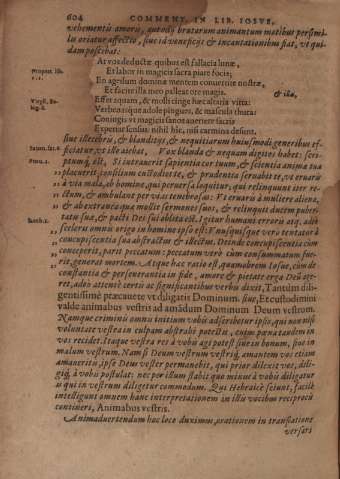 604 COMMENT. IN LIB. IOSVE,
vehementis amoris, quotidie brutarum animantium matibus persimi-
lis oriatur affectio, siue id veneficijs & incantationibus fiat, vt qui-
dam poscebat:
At vos deductæ quibus est fallacia lunæ,
Propert. lib.
Et labor in magicis sacra piare focis;
En agedum dominæ mentem conuertite nostræ,
Et facite illa meo palleat ore magis.
& ille,
Virgil.
Effer aquam, & molli cinge hæc altaria vitta:
Verbenasque adole pingues, & mascula thura:
Coniugis vt magicis sanos auertere sacris
Experiar sensus: nihil hîc, nisi carmina desunt.
Siue illecebris, & blanditijs, & nequitiarum huiusmodi generibus ef-
ficiatur, vt ille aiebat, Vox blanda & nequam digitos habet: scri-
Prou. 2.
ptum est, Si intrauerit sapientia cor tuum, & scientia animæ tuæ
placuerit, consilium custodiet te, & prudentia seruabit te, vt eruaris
à via mala, ab homine, qui peruersa loquitur, qui relinquunt iter re-
ctum, & ambulant per vias tenebrosas: Vt eruaris à muliere aliena,
& ab extranea, quæ mollit sermones suos, & relinquit ducem puber-
tatis suæ, & pacti Dei sui oblita est. Igitur humani erroris atque adeò
Iacob. 1.
sceleris omni origo in homine ipso est: Vnusquisque verò tentatur à
concupiscentia sua abstractus & illectus. Deinde concupiscentia cùm
conceperit, parit peccatum: peccatum verò cùm consummatum fue-
rit, generat mortem. Atque hæc ratio est, quamobrem Iosue, cùm de
constantia & perseuerantia in fide, amore & pietate erga Deum age-
ret, adeò attentè certis ac significantibus verbis dixit, Tantùm dili-
gentissimè præcauete vt diligatis Dominum. siue, Et custodimini
valde animabus vestris ad amãdum Dominum Deum vestrum.
Namque criminis omnis initium vobis adscribetur ipsis, qui non nisi
voluntate vestra in culpam abstrahi potestis, cuius pœna tandem in
vos recidet. Itaque vestra res à vobis agi potest siue in bonum, siue in
malum vestrum. Nam si Deum vestrum vestrique amantem vos etiam
amaueritis, ipse Deus vester permanebit, qui prior dilexit vos, dili-
gique à vobis postulat: nec per illum stabit quo minùs à vobis diligatur
is qui in vestrum diligetur commodum. Qui Hebraicè sciunt, facilè
intelligent omnem hanc interpretationem in illis vocibus reciprocis
contineri, Animabus vestris.
Animaduertendum hoc loco duximus, orationem in translatione
versari